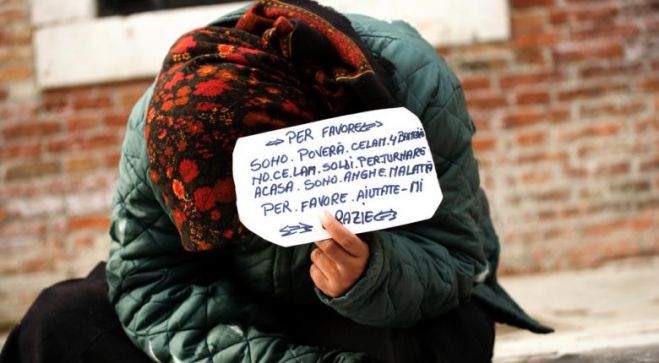 PER FAVORE
SONO. POVERA. CELAM. 4 BAMBINI
NO. CE. LAM. SOLDI. PERTURNARE
ACASA. SONO. ANGHE. MALATTA
PER. FAVORE. AIUTATE-MI
RAZIE